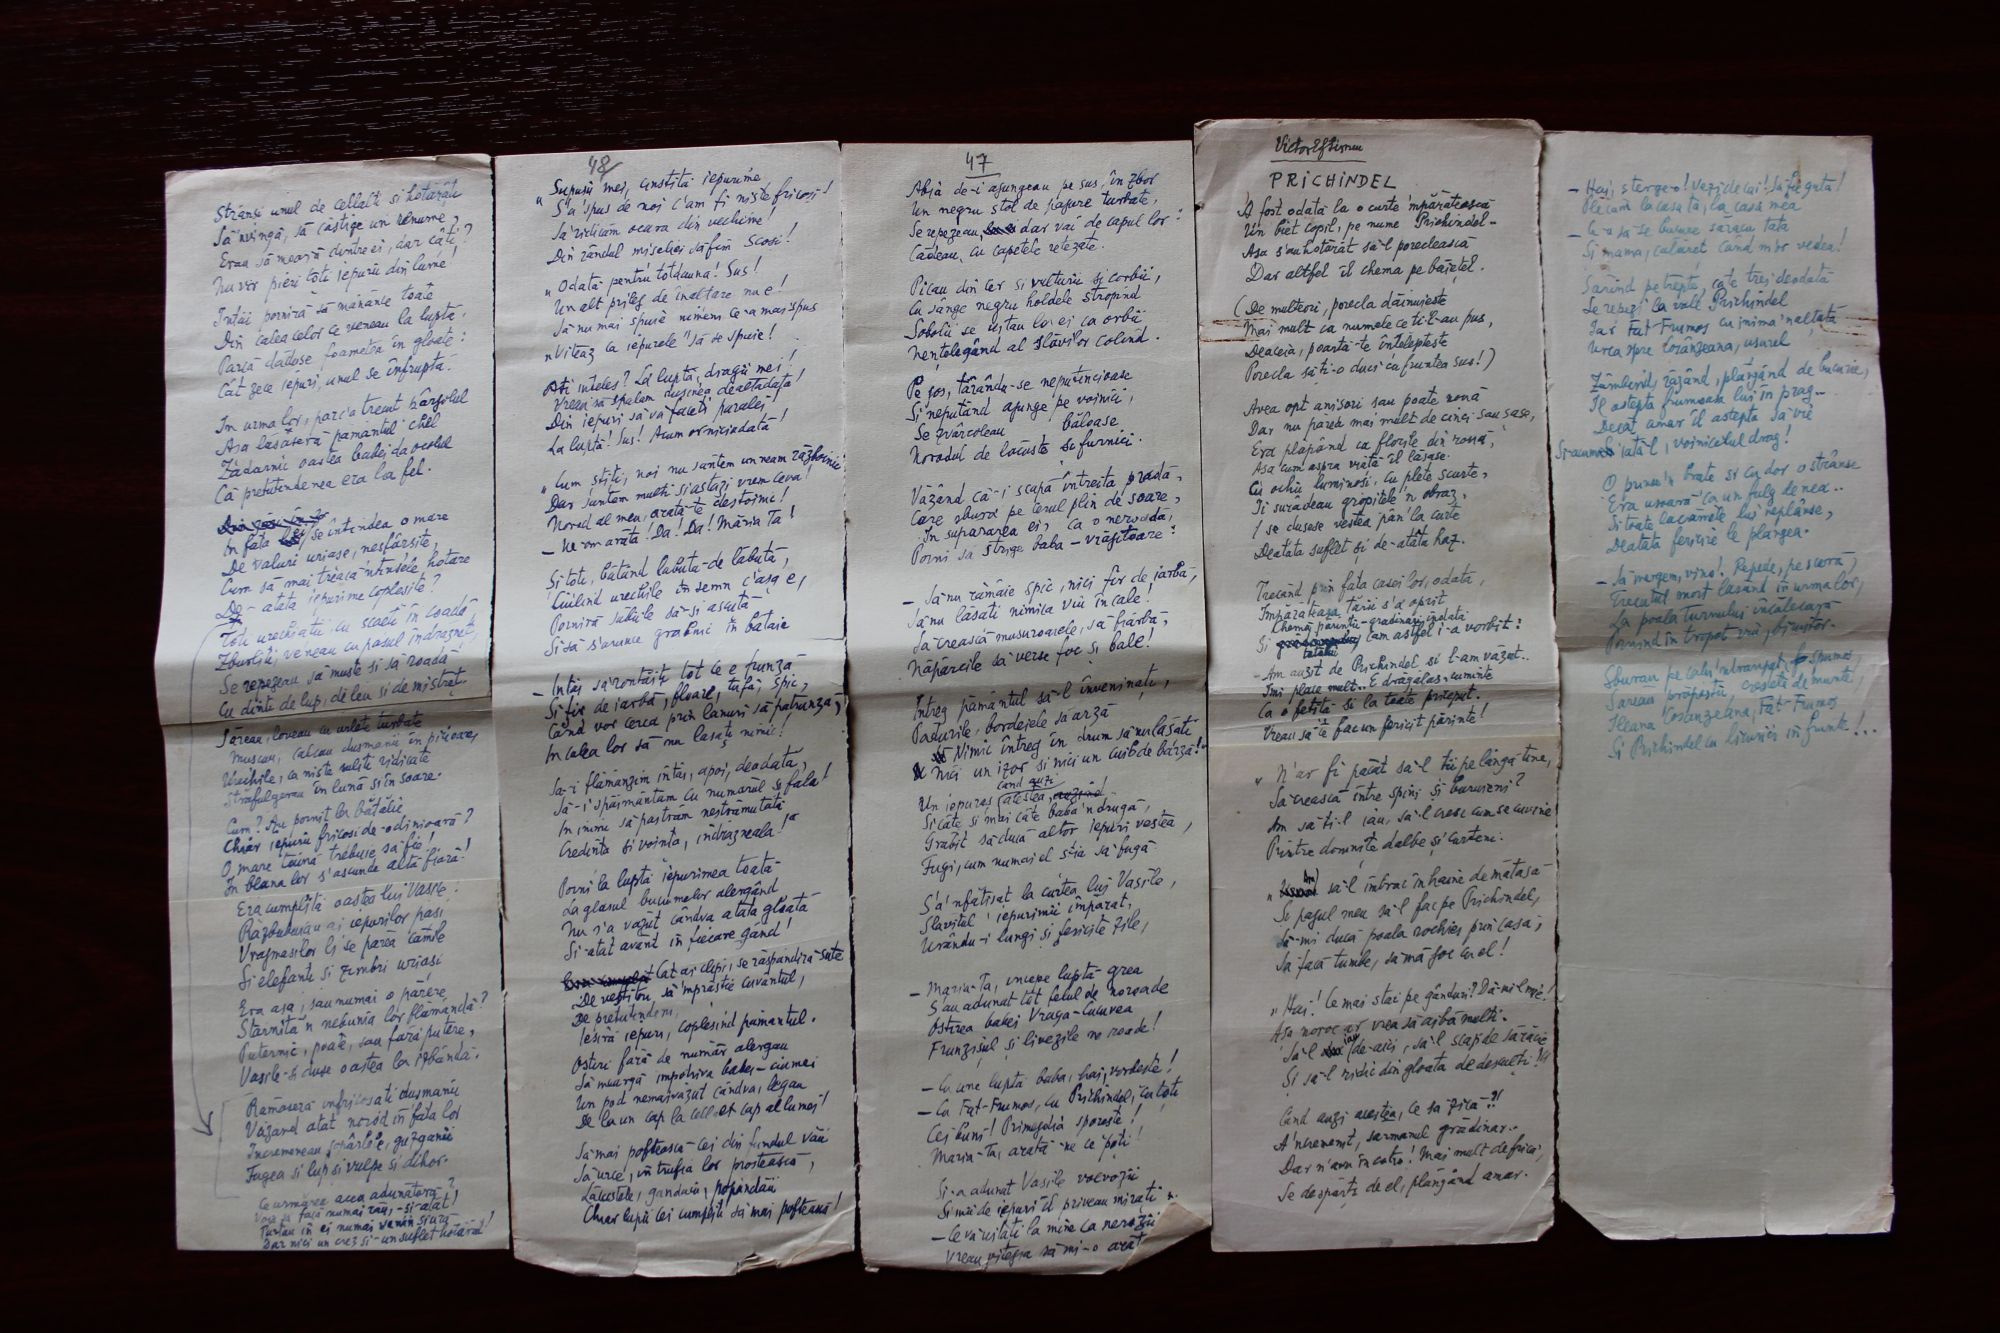 Strânși unul de cellalt și hotărâți
Să'nvingă, să câștige un renume,
Erau să moară dintre ei, dar câți?
Nu vor pieri toți iepurii din lume!
Întâi, porniră să mănânce toate
Din calea celor ce veneau la luptă.
Parcă dăduse foametea în gloate:
Cât zece iepuri, unul se înfruptă.
In urma lor, parc'a trecut pârjolul
Așa lăsaseră pământul chel
Zădarnic oastea babei, da ocolul
Că pretutindenea era la fel.
În fața lor, se întindea o mare
De valuri uriașe, nesfârșite,
Cum să mai treacă 'ntinsele hotare
De-atâta iepurime copleșite?
Toți urechiații cu scaeți în coadă,
Zburliți, veneau cu pasul îndrăzneț,
Se repezeau să muște și să roadă
Cu dinți de lup, de leu și de mistreț.
Săreau, loveau cu urlete turbate
Mușcau, călcau dușmanii în picioare
Urechile, ca niște suliți ridicate
Străfulgerau în lună și în soare.
Cum? Au pornit la bătălie
Chiar iepurii fricoși de-odinioară?
O mare taină trebuie să fie!
În blana lor s'ascunde altă fiară!
Era cumplită oastea lui Vasile.
Războinicii ai iepurilor pași
Vrăjmașilor li se părea cămile
Și elefanți și zimbri uriași
Era așa, sau numai o părere
Stârnită'n nebunia lor flămândă?
Puternic, poate, sau fără putere,
Vasile-și duse oastea la izbândă.
Rămaseră înfricoșați dușmanii
Văzând atât norod în fața lor
Incremeneau șopârlele, guzganii
Fugea și lup și vulpe și dihor.
Ce urmărea acea adunătură?
Voia să facă numai rău, și-atât!
Purtau în ei numai venin și ură
Dar nici un crez și-un suflet hotărât!
48
Supușii mei, cinstită iepurime
"S'a spus de noi c'am fi niște fricoși!
Să ridicăm ocara din vechime!
Din rândul mișeliei să fim scoși!
"Odată pentru totdeauna! Sus!
Un alt prilej de înălțare nu e!
Să nu mai spuie nimeni ce-a mai spus
"Viteaz ca iepurele" să se spuie!
Ați înțeles? La luptă, dragii mei!
Vreau să spălăm rușinea dealtădată!
Din iepuri să vă faceți paralei
La luptă! Sus! Acum or niciodată!
"Cum știți, noi nu suntem un neam războinic
Dar suntem mulți și astăzi vrem ceva!
Norod al meu, arată-te destoinic!
- Ne-om arăta! Da! Da! Măria Ta!
Și toți, bătând lăbuță-de lăbuță,
Ciulind urechile în semn c'așa e,
Porniră săbiile să-și ascuță
Și să s'arunce grabnic în bătaie
- Intâi să ronțăiți tot ce e frunză
Și fir de iarbă, floare, tufă, spic,
Când vor cerca prin lanuri să pătrunză,
In calea lor să nu lăsați nimic!
Sa-i flămânzim întâi, apoi, deodată,
Să-i spăimântăm cu numărul și fala!
In inimi să păstrăm nestrămutată
Credința și voința, îndrăzneala!"
Porni la luptă iepurimea toată
La glasul buciumelor alergând
Nu s'a văzut cândva atâta gloată
Și-atât avânt în fiecare gând!
Cât ai clipi, se răspândiră sute
De vestitori, să 'mprăștie cuvântul,
De pretutindeni,
Ieșiră iepuri, copleșind pământul.
Oștiri fără de număr alergau
Să meargă împotriva babei-ciumei
Un pod nemaivăzut cândva, legau
De la un cap la cellalt cap al lumei!
Să mai poftească cei din fundul văii
Să urce, în trufia lor prostească,
Lăcustele, gândacii, popândăii
Chiar lupii cei cumpliți să mai poftească!
47
Abia de-i ajungeau pe sus, în zbor
Un negru stol de pajure turbate,
Se repezeau, dar vai de capul lor:
Cădeau, cu capetele retezate.
Picau din cer și vulturii și corbii,
Cu sânge negru holdele stropind
Sobolii se uitau la ei ca orbii
Nențelegând al slăvilor colind.
Pe jos, târându-se neputincioase
Și neputând ajunge pe voinici,
Se zvârcoleau băloase
Norodul de lăcuste și furnici.
Văzând că-i scapă întreita pradă,
Care zbura pe cerul plin de soare,
In supărarea ei, ca o nerodă,
Porni să strige baba-vrăjitoare:
- Să nu rămâie spic, nici fir de iarbă,
Să nu lăsați nimica viu în cale!
Să crească mușuroaiele, să fiarbă,
Năpârcile să verse foc și bale!
Intreg pământul să-l înveninați,
Pădurile, bordeiele să arză
Nimic întreg în drum să nu lăsați
Nici un izvor și nici un cuib de barză!"
când auzi
Un iepuraș acestea,
Și câte și mai câte baba'n drugă,
Grăbit să ducă altor iepuri vestea,
Fugi, cum numai el știa să fugă
S'a 'nfățișat la curtea lui Vasile,
Slăvitul iepurimii împărat,
Urându-i lungi și fericite zile,
- Maria-Ta, începe luptă grea
S'au adunat tot felul de noroade
Oștirea babei Vraga-Cucuvea
Frunzișul și livezile ne roade!
- Cu cine luptă baba, hai, vorbește!
- Cu Făt-Frumos, cu Prichindel, cu toți
Cei buni! Primejdia sporește!
Maria-Ta, arată-ne ce poți!
Și-a adunat Vasile voevozii
Și mii de iepuri îl priveau mirați
- Ce vă uitați la mine ca nerozii
Vreau vitejia să mi-o arăt
Victor Eftimiu
PRICHINDEL
A fost odată la o curte împărătească
Un biet copil, pe nume Prichindel..
Așa s'au hotărât să-l poreclească
Dar altfel îl chema pe băiețel.
(De multe ori, porecla dăinuiește
Mai mult ca numele ce ți-l-au pus,
Deaceia, poartă-te înțelepțește
Porecla să ți-o duci cu fruntea sus!)
Avea opt anișori sau poate nouă
Dar nu părea mai mult de cinci sau șase,
Era plăpând ca florile din rouă,
Așa cum aspra viață îl lăsase.
Cu ochii luminoși, cu plete scurte,
Ii surâdeau gropițele 'n obraz,
I se dusese vestea pân' la curte
Deatâta suflet și de-atâta haz.
Trecând prin fața casei lor, odată,
Impărăteasa țării s'a oprit
Chemă părinții-grădinari, îndată
Și tatălui cam astfel i-a vorbit:
- Am auzit de Prichindel și l-am văzut..
Imi place mult.. E drăgălaș, cuminte
Ca o fetiță și la toate priceput.
Vreau să te fac un fericit părinte!
"N'ar fi păcat să-l ții pe lângă tine,
Să crească între spini și buruieni?
Am să ți-l iau, să-l cresc cum se cuvine
Printre domnițe dalbe și curteni.
"Am să-l îmbrac în haine de mătasă
Și pajul meu să-l fac pe Prichindel,
Să-mi ducă poala rochiei prin casă,
Să facă tumbe, să mă joc cu el!
"Hai! Ce mai stai pe gânduri? Dă-mi-l mie!
Așa noroc ar vrea să aibă mulți.
Să-l iau de-aici, să-l scap de sărăcie
Și să-l ridic din gloata de desculți!"
Când auzi acestea, ce să zică?!
A'ncremenit, sărmanul grădinar..
Dar n'avu încotro! Mai mult de frică,
Se despărți de el, plângând amar.
- Hai, șterge-o! Vezi de cai! Să fie gata!
Plecăm la casa ta, la casa mea
- Ce-o să se bucure săracu tata
Și mama, călăreț când m'or vedea!
Sărind pe trepte, câte trei deodată
Se repezi ca vulturul Prichindel
Iar Făt-Frumos cu inima 'naltată
Urca spre Cosânzeana, ușurel
Zâmbind, râzând, plângând de bucurie,
Il aștepta frumoasa lui în prag...
Decât amar îl aștepta să vie
Și acum iată-l, voinicelul drag!
O prinse'n brațe și cu dor o strânse
Era ușoară ca un fulg de nea..
Și toate lacrămile lui neplânse,
Deatâta fericire le plângea.
- Să mergem, vino! Repede, pe scară,
Trecutul mort lăsând în urma lor,
La poala turnului încălecară
Pornind în tropot viu, biruitor.
Sburau pe caii 'ntraripați, în spume
Săreau prăpăstii, crestele de munte,
Ileana Cosânzeana, Făt-Frumos
Și Prichindel cu licurici în frunte!...